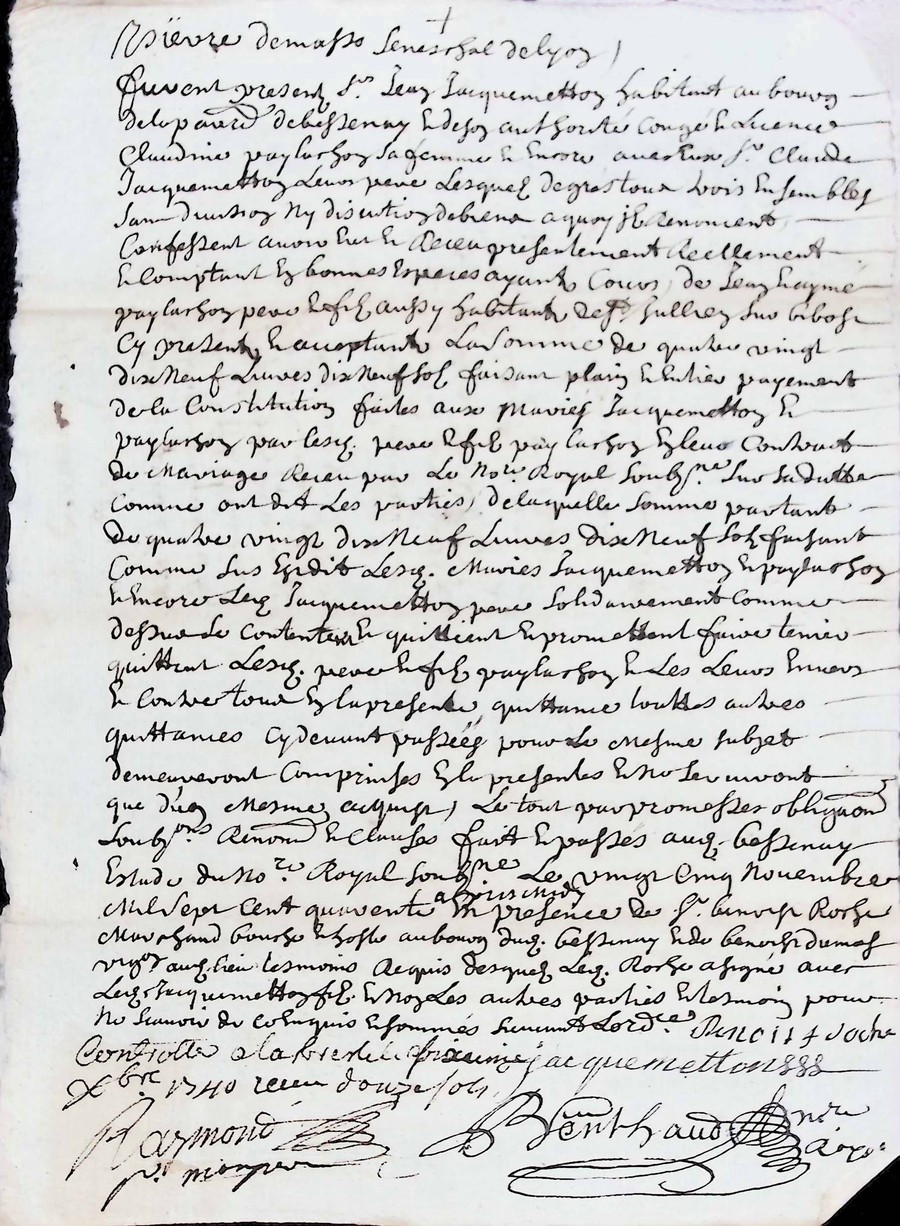 Furent present Sr Jean Jacquemetton habitant au bourg
de la parr. de bessenay et de son authorité Congé et Licence
Claudine paylachon sa femme et Encore avec Eux Sr Claude
Jacquemetton Leur pere Lesquels de gres tous trois Ensembles
sans division Ny discution de biens a quoy ils Renoncent
Confessent avoir Eut et Receu presentement Reellement
et Comptant En bonnes Especes ayant Cours, de Jean
paylachon pere et fils aussy habitant de St Jullien sur bibost
Cy present et acceptants La Somme de quatre vingt
dix Neuf Livres dix Neuf sols faisant plain et Entier payement
de la Constitution faites aux Mariés Jacquemetton et
paylachon par lesq. pere et fils paylachon En leur Contract
de Mariage Receu par Le Nore Royal soubsne Sur sa dotte
Comme ont dit Les parties, de laquelle somme partant
de quatre vingt dix Neuf Livres dix Neuf sols faisant
Comme sus Est dit Lesq. Maries Jacquemetton et paylachon
et Encore Led. Jacquemetton pere solidairement Comme
dessus se Contentent et quittent et promettent faire tenir
quittent Lesq. pere et fils paylachon et Les Leurs Envers
et Contre tous En la presente quittance touttes autres
quittances Cy devant passées pour Le Mesme subjet
demeureront Comprinses En la presentes et No serviront
que d'un Mesme acquist, Le tout par promesses obligaon
soubons Renond et Clauses fait et passés aud. bessenay
Estude du Nore Royal soubsne Le vingt Cinq Novembre
Mil sept Cent quarente apres midy En presence de Sr benoist Roche
Marchand boucher et hoste au bourg dud. bessenay et de benoist dumas
vigon aud. lieu tesmoins Requis desquels Led. Roche a signé avec
Led. Jacquemetton fils Et Non Les autres parties et tesmoin pour
No scavoir de ce Enquis et sommés suivant Lordce Benoist Roche
Controllé a la jacquemetton
Xbre 1740 receu douze sols
Raymond Benthaud Nore Royal
pr mon pere